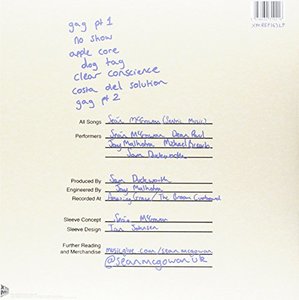 gag pt 1
no show
apple core
dog tag
clear conscience
costa del solution
gag pt 2
XMREP163LP
All Songs Seán McGowan
Performers Seán McGowan Dean Paul
Jay Malhotra Michael
Sam Duckworth
Produced By Sam Duckworth
Engineered By Jay Malhotra
Recorded At Amazing Grace / The Broom Cupboard
Sleeve Concept Seán McGowan
Sleeve Design Ian Johnsen
Further Reading
and Merchandise musicglue.com/seanmcgowan
@seanmcgowanuk